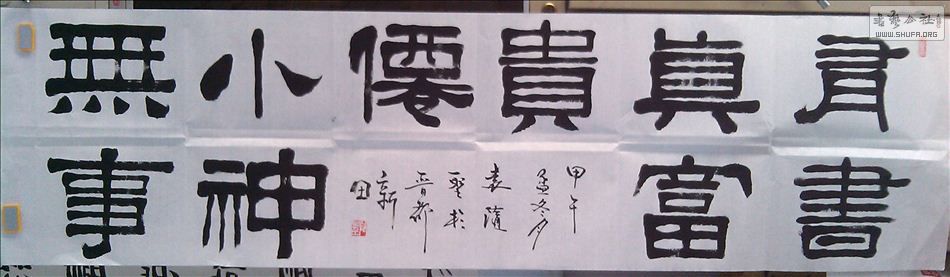 有書
真富
貴
無事
小神
僊
甲午
孟冬月
袁隨
聖於
晉都
新田
書藝公社
WWW.SHUFA.ORG